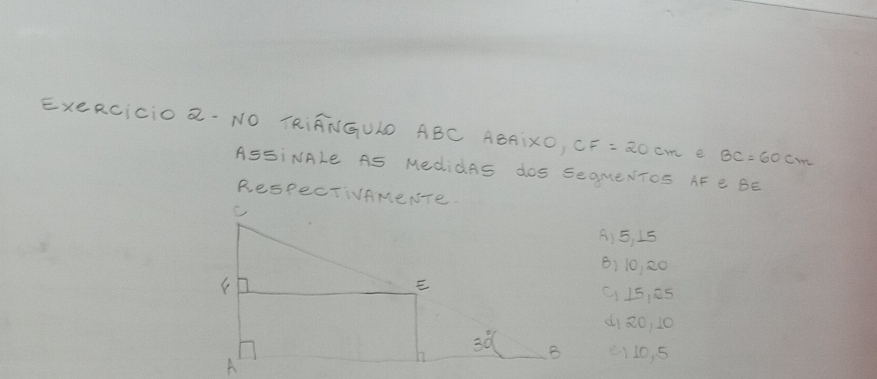 Exercicio 2 - NO TRIÂNGULO ABC ABAIXO, CF = 20 cm e BC = 60 cm
ASSINALE AS MEDIDAS DOS SEGMENTOS AF e BE
RESPECTIVAMENTE.
C
A) 5, 15
B) 10, 20
F
E
C) 15, 25
d) 20, 10
30°
B
e) 10, 5
A